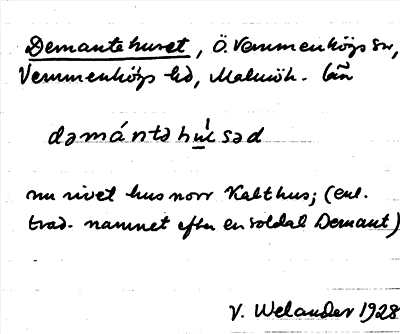 Demantehuset, Ö. Vemmenhögs sn,
Vemmenhögs hd, Malmöh. län
dəmántəhu̲səd
nu rivet hus norr Kalthus; (enl.
trad. namnet efter en soldat Demant)
V. Welander 1928